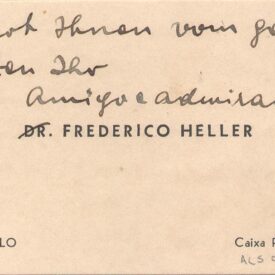 Ihnen vom
Ihr
Amigo e admira
DR. FREDERICO HELLER
LO
Caixa P
ALS